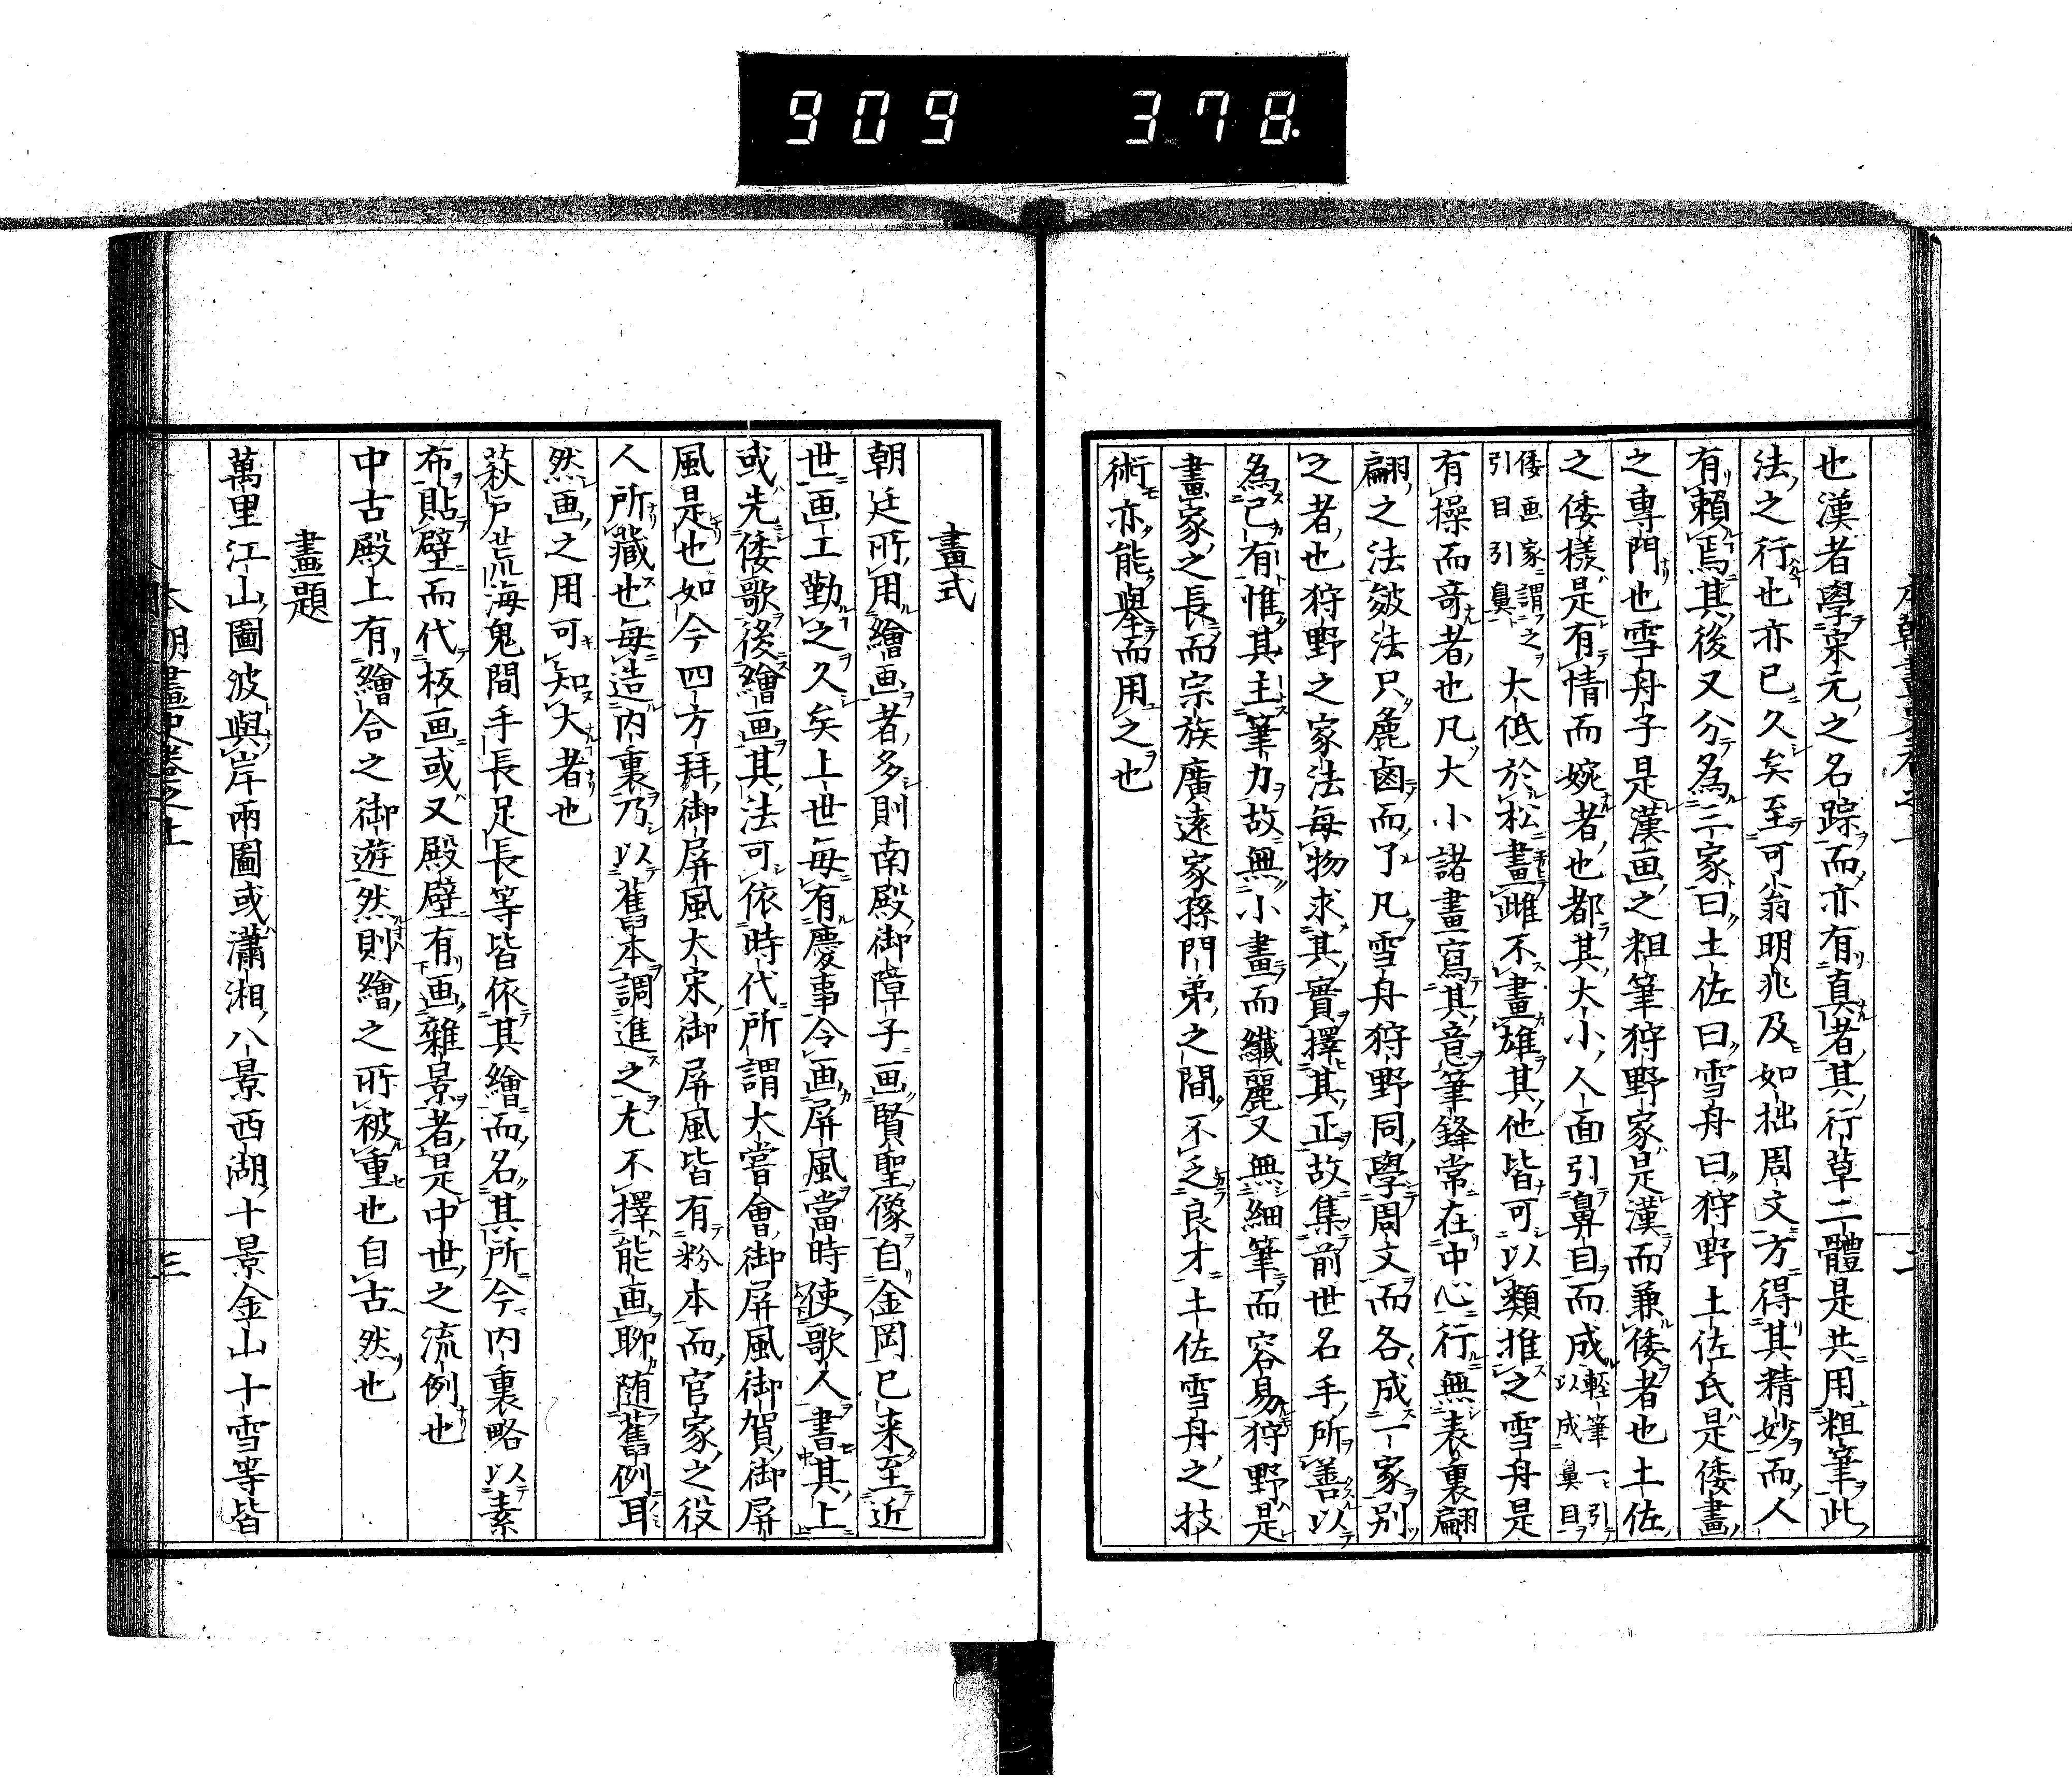 909 378.
也漢者學宋元之名踪而亦有真者其行草二體是共用粗筆此
法之行也亦已久矣至可翁明兆及如拙周文方得其精妙而人
有賴焉其後又分為三家曰土佐曰雪舟曰狩野土佐氏是倭畫
之專門也雪舟子是漢画之粗筆狩野家是漢而兼倭者也土佐
之倭樣是有情而婉者也都其大小人面引鼻目而成軽筆一引以成鼻目
倭画家謂之引目引鼻大低於松畫雌不畫雄其他皆可以類推之雪舟是
有操而奇者也凡大小諸畫寫其意筆鋒常在中心行無表裏翩
翩之法皴法只麁鹵而了凡雪舟狩野同學周文而各成一家別
之者也狩野之家法每物求其實擇其正故集前世名手所善以
為己有惟其主筆力故無小畫而纖麗又無細筆而容易狩野是
畫家之長而宗族廣遠家孫門弟之間不乏良才土佐雪舟之技
術亦能舉而用之也
畫式
朝廷所用繪画者多則南殿御障子画賢聖像自金岡已来至近
世画工勤之久矣上世每有慶事令画屏風當時使歌人書其上
或先倭歌後繪画其法可依時代所謂大嘗會御屏風御賀御屏
風是也如今四方拜御屏風大宋御屏風皆有粉本而官家之役
人所藏也每造内裏乃以舊本調進之尤不擇能画聊随舊例耳
然画之用可知大者也
萩戸荒海鬼間手長足長等皆依其繪而名其所今内裏略以素
布貼壁而代板画或又殿壁有画雜景者是中世之流例也
中古殿上有繪合之御遊然則繪之所被重也自古然也
畫題
萬里江山圖波與岸兩圖或瀟湘八景西湖十景金山十雪等皆
本朝畫史卷之上
三